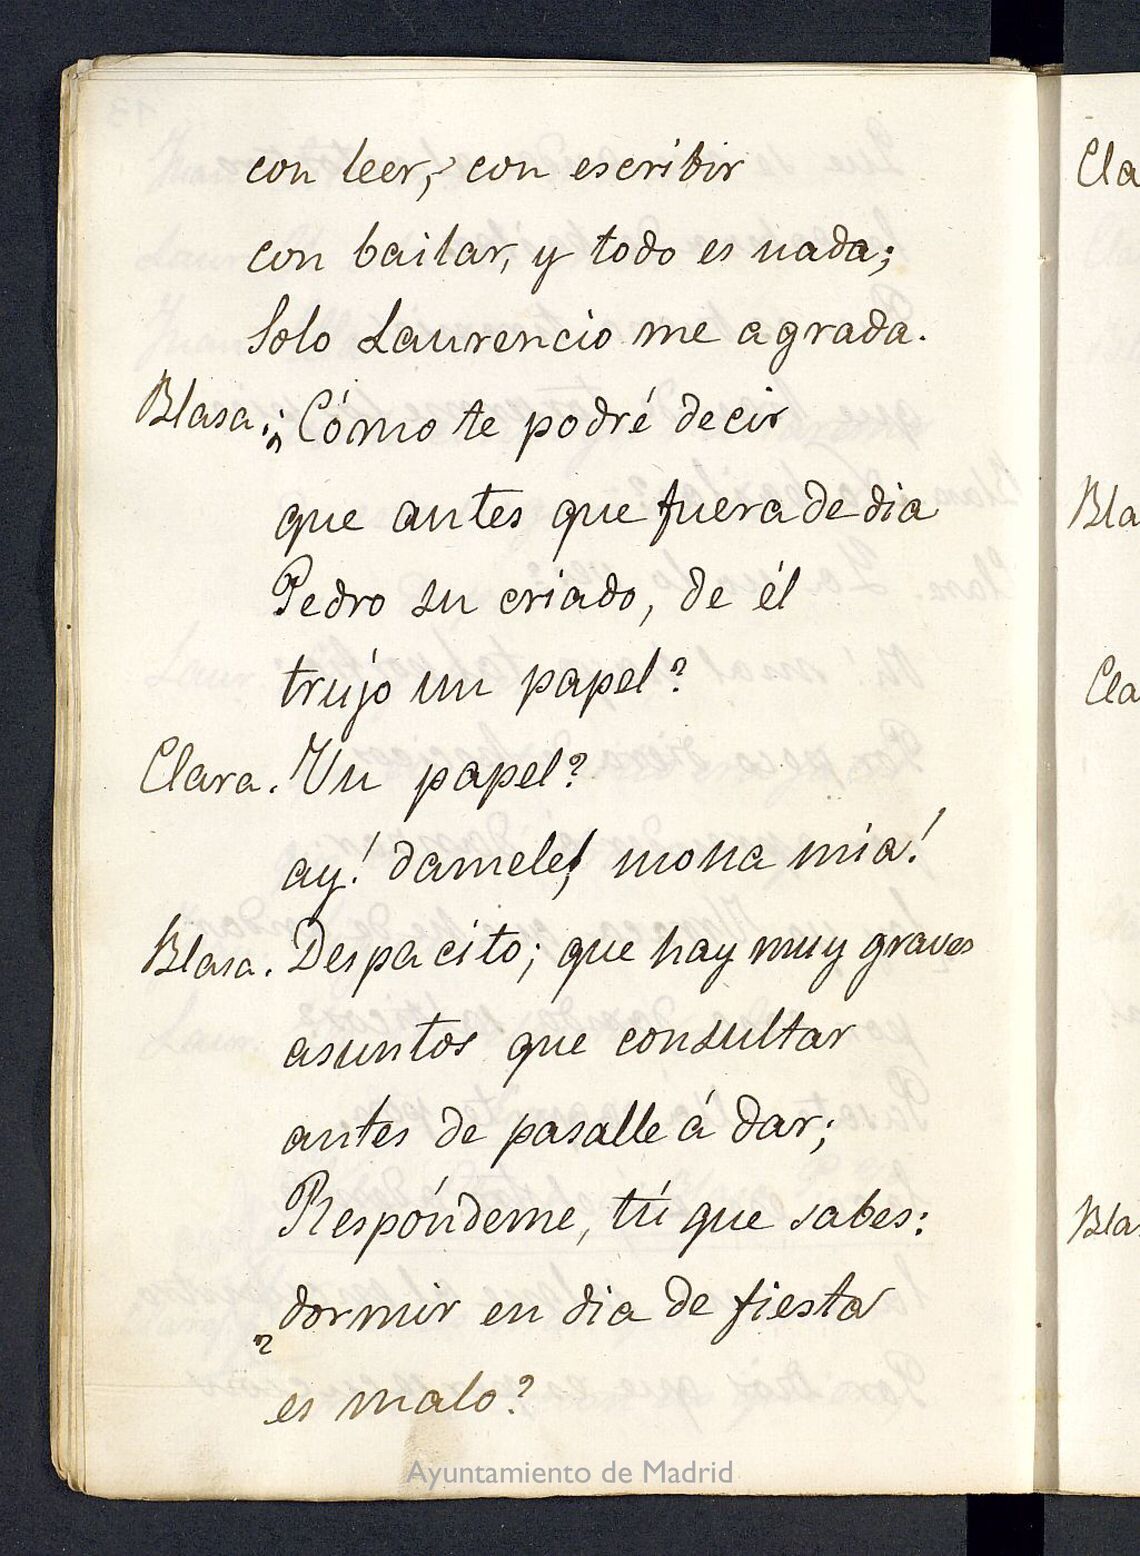 con leer, con escribir
con bailar, y todo es nada;
Solo Laurencio me agrada.
Blasa. ¿Cómo te podré decir
que antes que fuera de dia
Pedro su criado, de él
trújo un papel?
Clara. Un papel?
ay! damele, mona mia!
Blasa. Despacito; que hay muy graves
asuntos que consultar
antes de pasalle á dar;
Respóndeme, tú que sabes:
¿dormir en dia de fiesta
es malo?
Cla
Bla
Cla
Bla
Ayuntamiento de Madrid